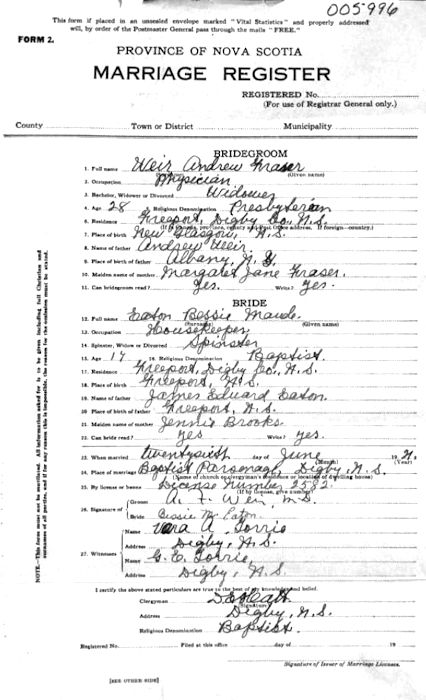 005996
This form if placed in an unsealed envelope marked "Vital Statistics" and properly addressed
will, by order of the Postmaster General pass through the mails "FREE."
FORM 2.
PROVINCE OF NOVA SCOTIA
MARRIAGE REGISTER
REGISTERED No.
(For use of Registrar General only.)
County Town or District Municipality
BRIDEGROOM
1. Full name Weir Andrew Fraser
(Surname) (Given name)
2. Occupation Physician
3. Bachelor, Widower or Divorced Widower
4. Age 28 5. Religious Denomination Presbyterian
6. Residence Freeport, Digby Co., N.S.
7. Place of birth New Glasgow, N.S.
8. Name of father Andrew Weir
9. Place of birth of father Albany, N.Y.
10. Maiden name of mother Margaret Jane Fraser.
11. Can bridegroom read? Yes. Write? Yes.
BRIDE
12. Full name Eaton Bessie Maude
(Surname) (Given name)
13. Occupation Housekeeper
14. Spinster, Widow or Divorced Spinster
15. Age 19 16. Religious Denomination Baptist.
17. Residence Freeport, Digby Co., N.S.
18. Place of birth Freeport, N.S.
19. Name of father James Edward Eaton.
20. Place of birth of father Freeport, N.S.
21. Maiden name of mother Jennie Brooks
22. Can bride read? yes Write? yes.
23. When married twentysixth day of June 19
(Month) (Year)
24. Place of marriage Baptist Parsonage, Digby, N.S.
(Name of church or clergyman's residence or location of dwelling house)
25. By license or banns License Number 2582.
(If by license, give number)
26. Signature of
Groom A. F. Weir, M.D.
Bride Bessie M. Eaton
27. Witnesses
Name Vera A. Torrie
Address Digby, N.S.
Name G. E. Torrie,
Address Digby, N.S
I certify the above stated particulars are true to the best of my knowledge and belief.
Clergyman
(Signature)
Address Digby, N.S.
Religious Denomination Baptist.
Registered No. Filed at this office day of 19
Signature of Issuer of Marriage Licenses.
[SEE OTHER SIDE]
NOTE.—This form must not be mutilated. All information asked for is to be given including full Christian and
surnames of all parties, and if for any reason this is impossible, the reason for the omission must be stated.